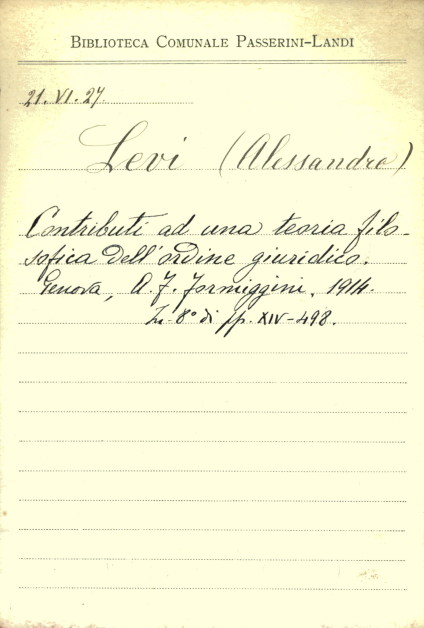 BIBLIOTECA COMUNALE PASSERINI-LANDI
21. VI. 27.
Levi (Alessandro)
Contributi ad una teoria filo-
sofica dell'ordine giuridico.
Genova, A. F. Formiggini, 1914.
In-8° di pp. XIV-498.